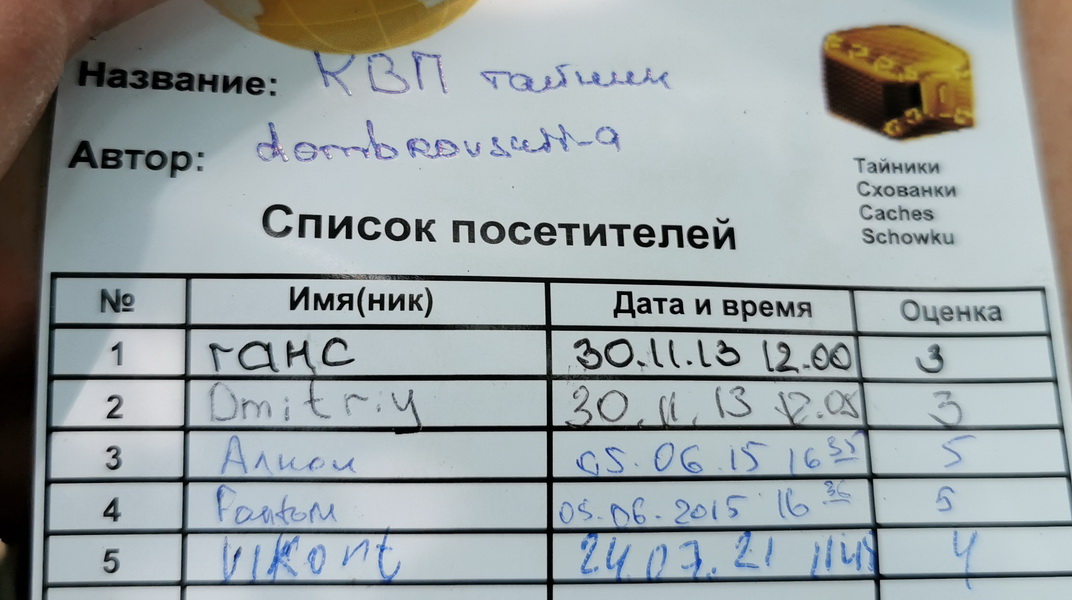 Название: КВП тайник
Автор: dombrovsutt-a
Тайники
Схованки
Caches
Schowku
Список посетителей
№ Имя(ник) Дата и время Оценка
1 ганс 30.11.13 12.00 3
2 Dmitriy 30.11.13 12.05 3
3 05.06.15 16 35 5
4 Fantom 05.06.2015 16 36 5
5 Vikont 24.07.21 4